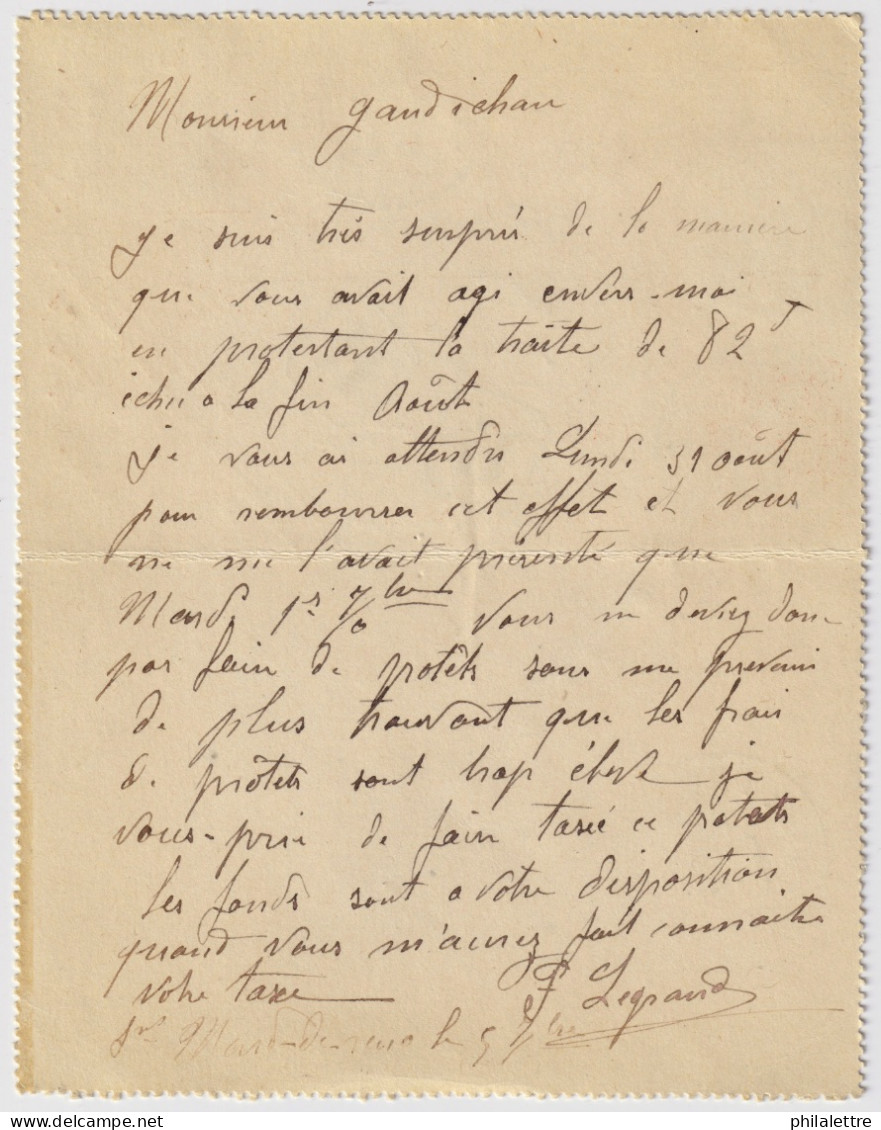 Monsieur gaudichau
je suis très surpris de la maniere
que vous avait agi envers-moi
en protestant la traite de 82 f
échu a la fin Août
je vous ai attendu Lundi 31 août
pour rembourser cet effet et vous
ne me l'avait présenté que
Mardi 1er 7bre vous ne deviez donc
pas fair de protêts sans me prevenir
de plus trouvant que les frais
de protêts sont trop élevé je
vous-prie de fair taxé ce protets
les fonds sont a votre disposition
quand vous m'aurez fait connaitre
votre taxe Legrand
le 5 7bre
philalettre